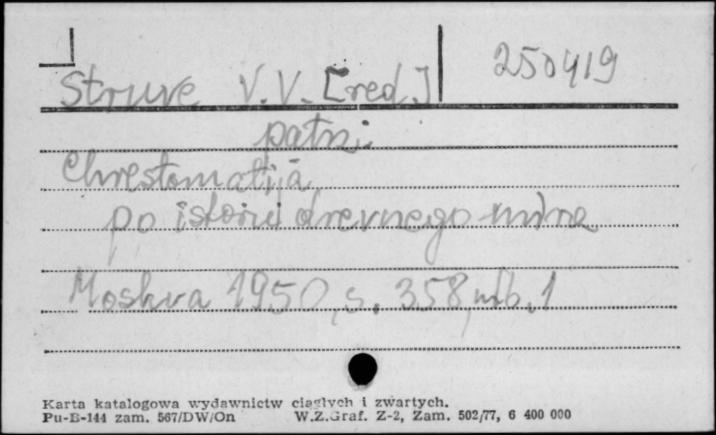 250419
Struve V.V. [red.]
patrz:
Chrestomatija
po istorii drevnego mira
Moskva 1950, s. 358, tab. 1
Karta katalogowa wydawnictw ciągłych i zwartych.
Pu-B-144 zam. 567/DW/On W.Z.Graf. Z-2, Zam. 502/77, 6 400 000